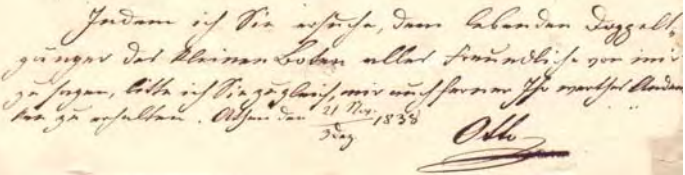 Indem ich Sie ersuche, dem lebenden Doppelt-
gänger des kleinen Boten alles Freundliche von mir
zu sagen, bitte ich Sie zugleich, mir auch ferner Ihr werthes Anden
ken zu erhalten. Athen den 21 Nov. 1838
3 Dez.
Otto